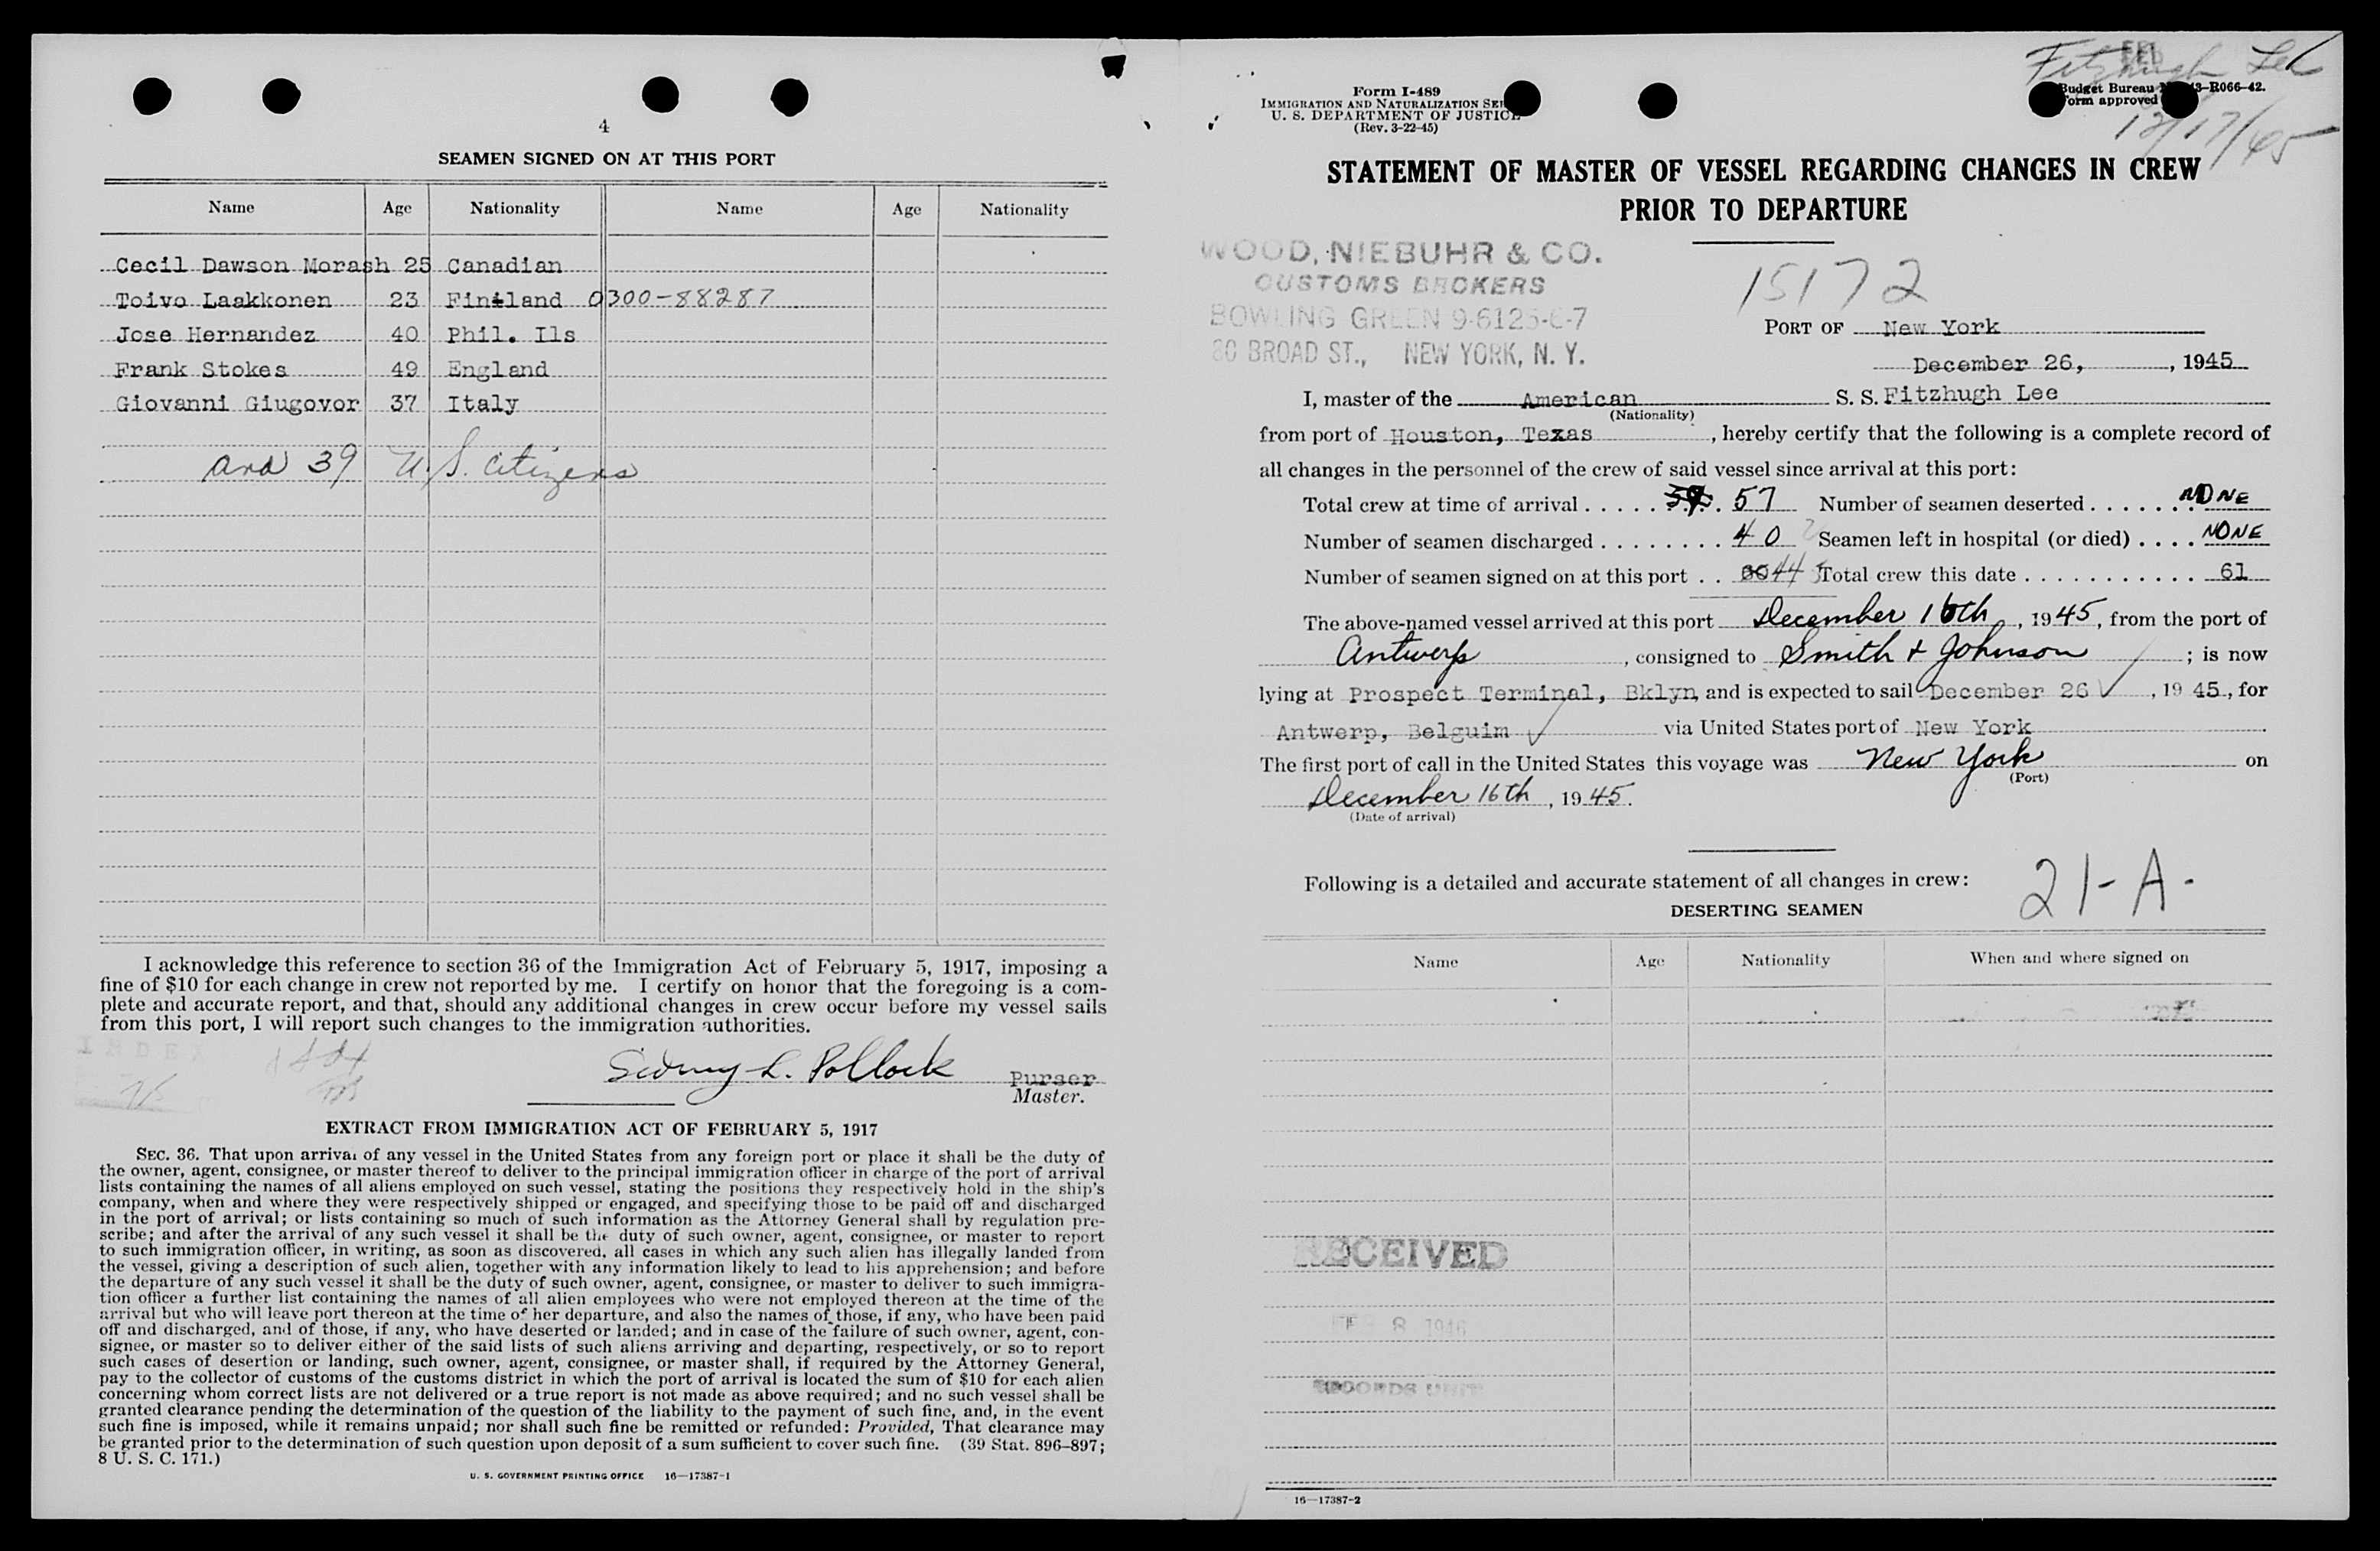 4
SEAMEN SIGNED ON AT THIS PORT
Name Age Nationality Name Age Nationality
Cecil Dawson Morash 25 Canadian
Toivo Laakkonen 23 Finland 0300-88287
Jose Hernandez 40 Phil. Ils
Frank Stokes 49 England
Giovanni Giugovor 37 Italy
and 39 U.S. Citizens
I acknowledge this reference to section 36 of the Immigration Act of February 5, 1917, imposing a
fine of $10 for each change in crew not reported by me. I certify on honor that the foregoing is a com-
plete and accurate report, and that, should any additional changes in crew occur before my vessel sails
from this port, I will report such changes to the immigration authorities.
INDEX
Sidney L. Pollock Purser
Master.
EXTRACT FROM IMMIGRATION ACT OF FEBRUARY 5, 1917
SEC. 36. That upon arrival of any vessel in the United States from any foreign port or place it shall be the duty of
the owner, agent, consignee, or master thereof to deliver to the principal immigration officer in charge of the port of arrival
lists containing the names of all aliens employed on such vessel, stating the positions they respectively hold in the ship's
company, when and where they were respectively shipped or engaged, and specifying those to be paid off and discharged
in the port of arrival; or lists containing so much of such information as the Attorney General shall by regulation pre-
scribe; and after the arrival of any such vessel it shall be the duty of such owner, agent, consignee, or master to report
to such immigration officer, in writing, as soon as discovered, all cases in which any such alien has illegally landed from
the vessel, giving a description of such alien, together with any information likely to lead to his apprehension; and before
the departure of any such vessel it shall be the duty of such owner, agent, consignee, or master to deliver to such immigra-
tion officer a further list containing the names of all alien employees who were not employed thereon at the time of the
arrival but who will leave port thereon at the time of her departure, and also the names of those, if any, who have been paid
off and discharged, and of those, if any, who have deserted or landed; and in case of the failure of such owner, agent, con-
signee, or master so to deliver either of the said lists of such aliens arriving and departing, respectively, or so to report
such cases of desertion or landing, such owner, agent, consignee, or master shall, if required by the Attorney General,
pay to the collector of customs of the customs district in which the port of arrival is located the sum of $10 for each alien
concerning whom correct lists are not delivered or a true report is not made as above required; and no such vessel shall be
granted clearance pending the determination of the question of the liability to the payment of such fine, and, in the event
such fine is imposed, while it remains unpaid; nor shall such fine be remitted or refunded: Provided, That clearance may
be granted prior to the determination of such question upon deposit of a sum sufficient to cover such fine. (39 Stat. 896–897;
8 U. S. C. 171.)
U. S. GOVERNMENT PRINTING OFFICE 16—17387-1
Fitzhugh Lee
12/17/45
Form I-489
IMMIGRATION AND NATURALIZATION SE
U. S. DEPARTMENT OF JUSTICE
(Rev. 3-22-45)
Budget Bureau 3-R066-42.
Form approved
STATEMENT OF MASTER OF VESSEL REGARDING CHANGES IN CREW
PRIOR TO DEPARTURE
WOOD, NIEBUHR & CO.
CUSTOMS BROKERS
BOWLING GREEN 9-6125-6-7
80 BROAD ST., NEW YORK, N. Y.
15172
PORT OF New York
December 26, , 1945
I, master of the American S. S. Fitzhugh Lee
(Nationality)
from port of Houston, Texas , hereby certify that the following is a complete record of
all changes in the personnel of the crew of said vessel since arrival at this port:
Total crew at time of arrival 57 Number of seamen deserted NONE
Number of seamen discharged 40 Seamen left in hospital (or died) NONE
Number of seamen signed on at this port 44 Total crew this date 61
The above-named vessel arrived at this port December 16th , 1945, from the port of
Antwerp , consigned to Smith & Johnson ; is now
lying at Prospect Terminal, Bklyn, and is expected to sail December 26 , 1945, for
Antwerp, Belguim via United States port of New York
The first port of call in the United States this voyage was New York on
(Port)
December 16th , 1945.
(Date of arrival)
Following is a detailed and accurate statement of all changes in crew:
21-A.
DESERTING SEAMEN
Name Age Nationality When and where signed on
RECEIVED
8 1946
RECORDS UNIT
16—17387-2